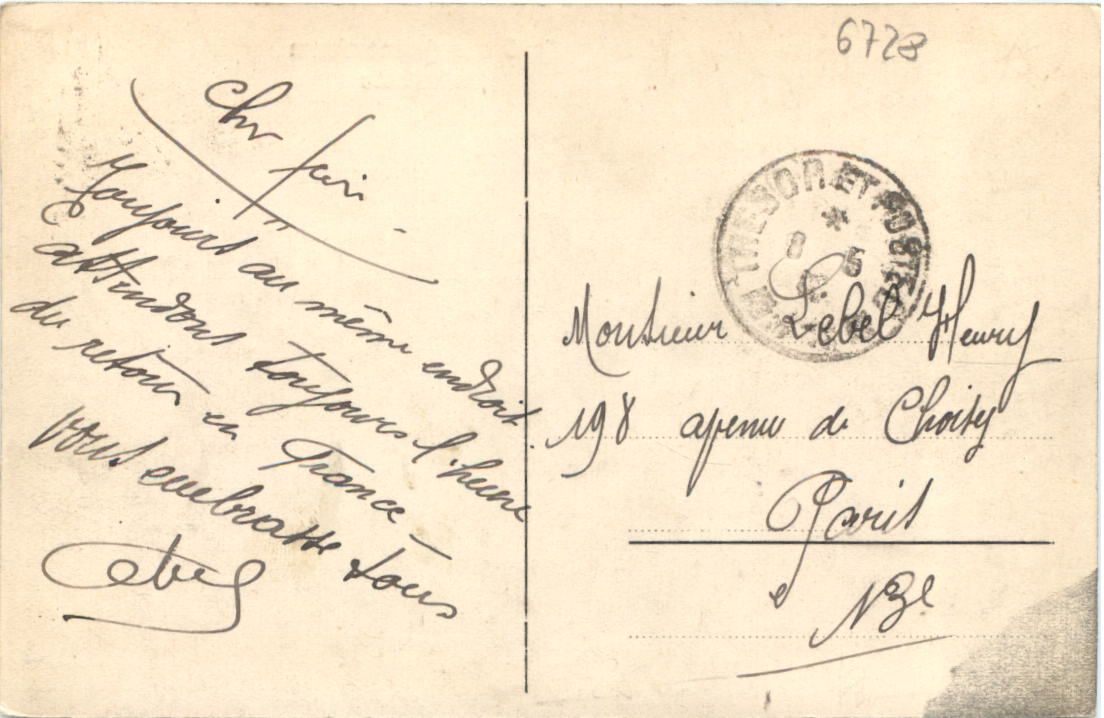 6728
Toujours au même endroit
attendons toujours l'heure
du retour en France
vous embrasse tous
Lebel
TRESOR ET POSTES
8 5
Monsieur Lebel Henry
198 avenue de Choisy
Paris